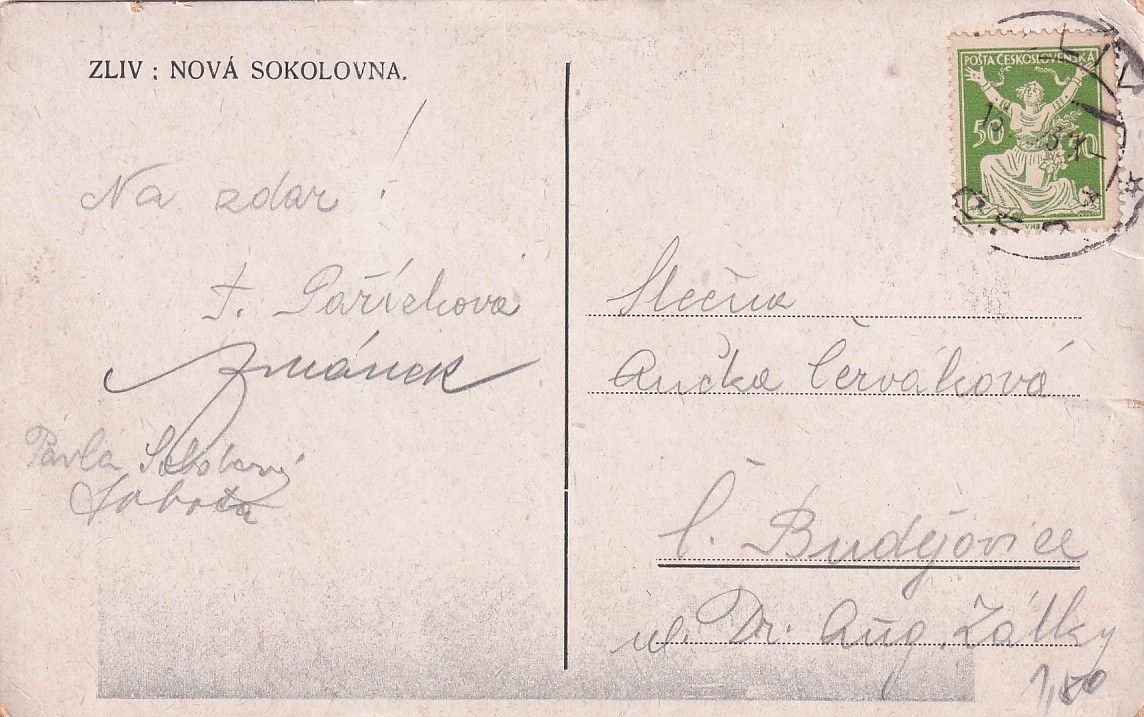 ZLIV : NOVÁ SOKOLOVNA.
Na zdar!
Pavla
Sobota
POŠTA ČESKOSLOVENSKÁ
50
Slečna
Anička Červáková
Č. Budějovice
ul. Dr. Aug. Zátky
1,80